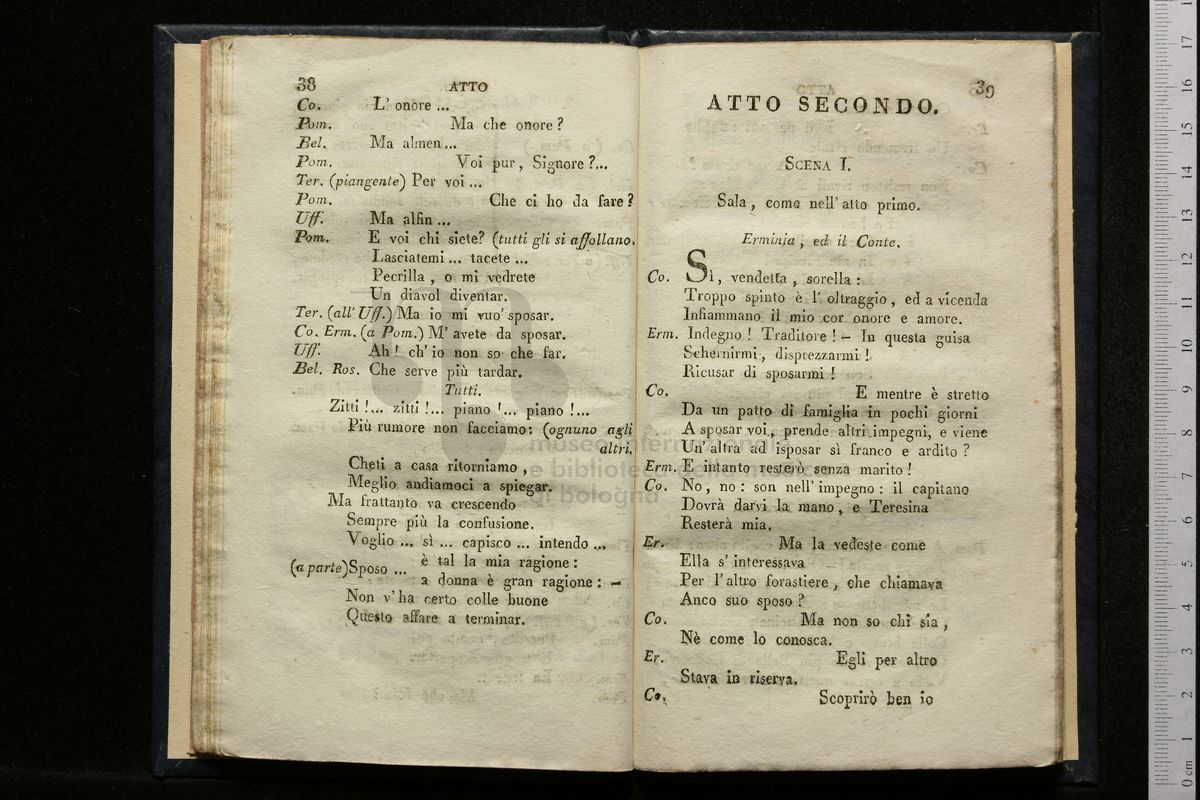 38 ATTO
Co. L' onore ...
Pom. Ma che onore?
Bel. Ma almen ...
Pom. Voi pur, Signore?...
Ter. (piangente) Per voi ...
Pom. Che ci ho da fare?
Uff. Ma alfin ...
Pom. E voi chi siete? (tutti gli si affollano.
Lasciatemi ... tacete ...
Pecrilla, o mi vedrete
Un diavol diventar.
Ter. (all' Uff.) Ma io mi vuo' sposar.
Co. Erm. (a Pom.) M' avete da sposar.
Uff. Ah! ch' io non so che far.
Bel. Ros. Che serve più tardar.
Tutti.
Zitti!... zitti!... piano!... piano!...
Più rumore non facciamo: (ognuno agli
altri.
Cheti a casa ritorniamo,
Meglio andiamoci a spiegar.
Ma frattanto va crescendo
Sempre più la confusione.
Voglio ... sì ... capisco ... intendo ...
(a parte) Sposo ... è tal la mia ragione:
a donna è gran ragione: —
Non v' ha certo colle buone
Questo affare a terminar.
39
ATTO SECONDO.
SCENA I.
Sala, come nell' atto primo.
Erminia, ed il Conte.
Co. Sì, vendetta, sorella:
Troppo spinto è l' oltraggio, ed a vicenda
Infiammano il mio cor onore e amore.
Erm. Indegno! Traditore! — In questa guisa
Schernirmi, disprezzarmi!
Ricusar di sposarmi!
Co. E mentre è stretto
Da un patto di famiglia in pochi giorni
A sposar voi, prende altri impegni, e viene
Un' altra ad isposar sì franco e ardito?
Erm. E intanto resterò senza marito!
Co. No, no: son nell' impegno: il capitano
Dovrà darvi la mano, e Teresina
Resterà mia.
Er. Ma la vedeste come
Ella s' interessava
Per l' altro forastiere, che chiamava
Anco suo sposo?
Co. Ma non so chi sia,
Nè come lo conosca.
Er. Egli per altro
Stava in riserva.
Co. Scoprirò ben io
museo internazionale
e biblioteca della musica
di bologna
0 cm 1 2 3 4 5 6 7 8 9 10 11 12 13 14 15 16 17